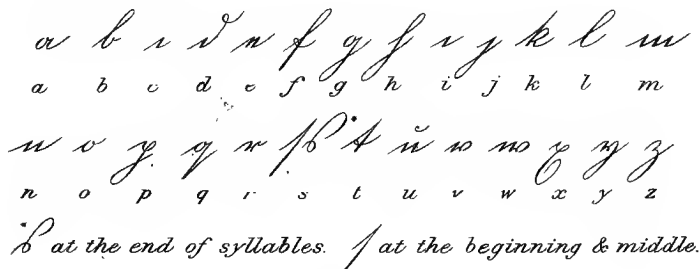 a b c d e f g h i j k l m
a b c d e f g h i j k l m
n o p q r ſs t ŭ v w x y z
n o p q r s t u v w x y z
s at the end of syllables. ſ at the beginning & middle.